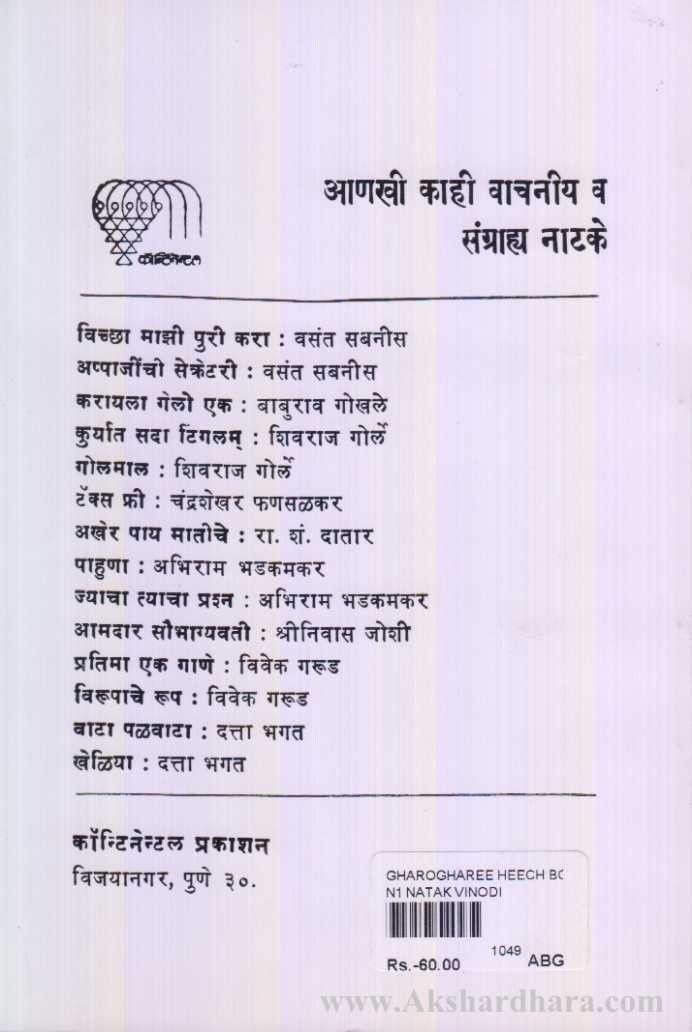 आणखी काही वाचनीय व
संग्राह्य नाटके
कॉन्टिनेन्टल
विच्छा माझी पुरी करा : वसंत सबनीस
अप्पाजींची सेक्रेटरी : वसंत सबनीस
करायला गेलो एक : बाबुराव गोखले
कुर्यात सदा टिंगलम् : शिवराज गोर्ले
गोलमाल : शिवराज गोर्ले
टॅक्स फ्री : चंद्रशेखर फणसळकर
अखेर पाय मातीचे : रा. शं. दातार
पाहुणा : अभिराम भडकमकर
ज्याचा त्याचा प्रश्न : अभिराम भडकमकर
आमदार सौभाग्यवती : श्रीनिवास जोशी
प्रतिमा एक गाणे : विवेक गरूड
विरूपाचे रूप : विवेक गरूड
वाटा पळवाटा : दत्ता भगत
खेळिया : दत्ता भगत
कॉन्टिनेन्टल प्रकाशन
विजयानगर, पुणे ३०.
GHAROGHAREE HEECH BO
N1 NATAK VINODI
1049
Rs.-60.00 ABG
www.Akshardhara.com